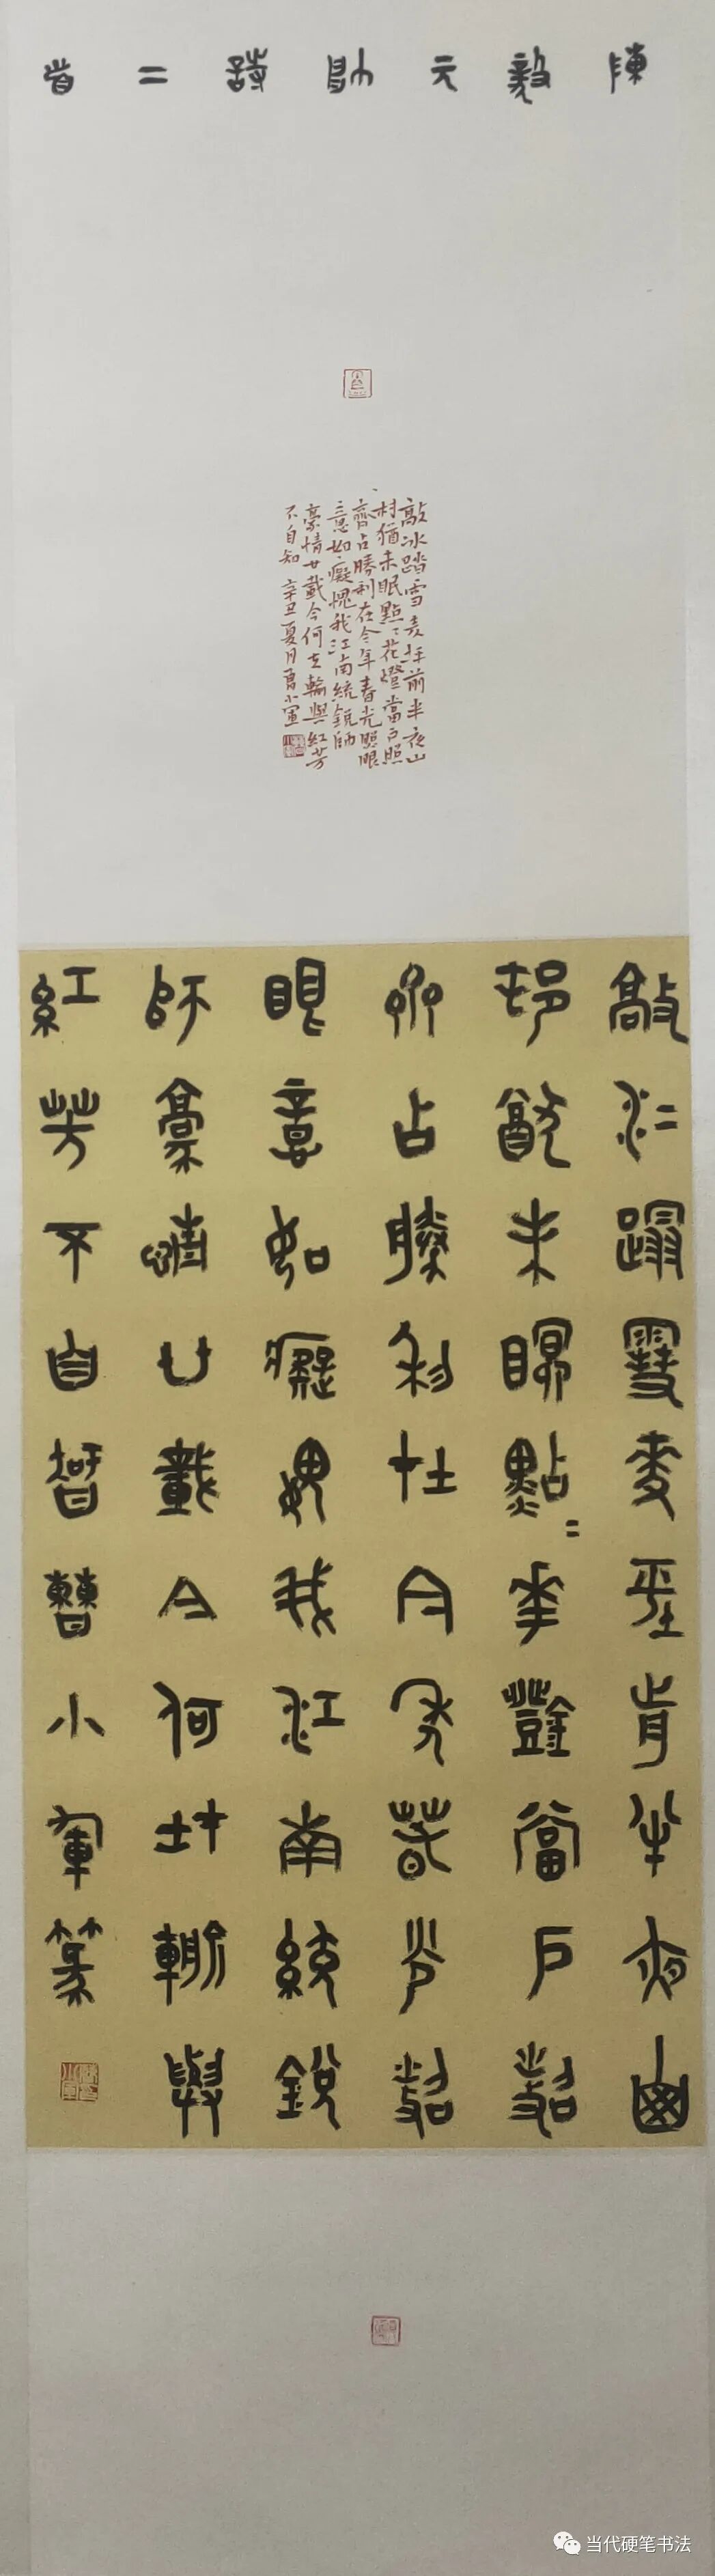 陳毅元帥詩二首
敲冰踏雪麦坪前半夜山
村猶未眠點〻花燈當戶照
齊占勝利在今年春光照眼
意如癡愧我江南統銳師
豪情廿載今何在輸與紅芳
不自知 辛丑夏月曹小軍
敲冰蹋雪麥坪前半夜山
邨猶未眠點〻華鐙當戶照
齊占勝利在今年春光照
眼意如癡愧我江南統銳
師豪情廿載今何在輸與
紅芳不自智曹小軍篆
当代硬笔书法